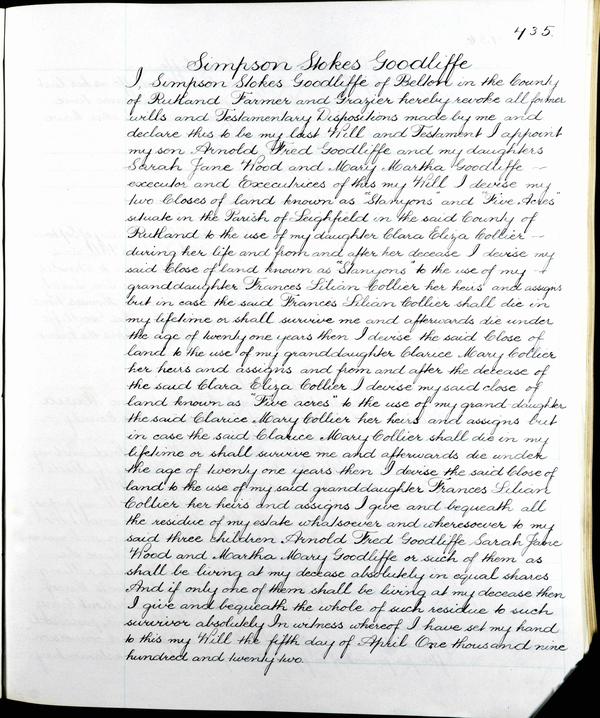 435.
Simpson Stokes Goodliffe
I Simpson Stokes Goodliffe of Belton in the County
of Rutland Farmer and Grazier hereby revoke all former
wills and Testamentary Dispositions made by me and
declare this to be my last Will and Testament I appoint
my son Arnold Fred Goodliffe and my daughters
Sarah Jane Wood and Mary Martha Goodliffe —
executor and Executrices of this my Will I devise my
two Closes of land known as "Stanyons" and "Five Acres"
situate in the Parish of Leighfield in the said County of
Rutland to the use of my daughter Clara Eliza Collier —
during her life and from and after her decease I devise my
said Close of land known as "Stanyons" to the use of my —
granddaughter Frances Lilian Collier her heirs and assigns
but in case the said Frances Lilian Collier shall die in
my lifetime or shall survive me and afterwards die under
the age of twenty one years then I devise the said Close of
land to the use of my granddaughter Clarice Mary Collier
her heirs and assigns and from and after the decease of
the said Clara Eliza Collier I devise my said close of
land known as "Five acres" to the use of my grand daughter
the said Clarice Mary Collier her heirs and assigns but
in case the said Clarice Mary Collier shall die in my
lifetime or shall survive me and afterwards die under
the age of twenty one years then I devise the said Close of
land to the use of my said granddaughter Frances Lilian
Collier her heirs and assigns I give and bequeath all
the residue of my estate whatsoever and wheresoever to my
said three children Arnold Fred Goodliffe Sarah Jane
Wood and Martha Mary Goodliffe or such of them as
shall be living at my decease absolutely in equal shares
And if only one of them shall be living at my decease then
I give and bequeath the whole of such residue to such
survivor absolutely In witness whereof I have set my hand
to this my Will the fifth day of April One thousand nine
hundred and twenty two.